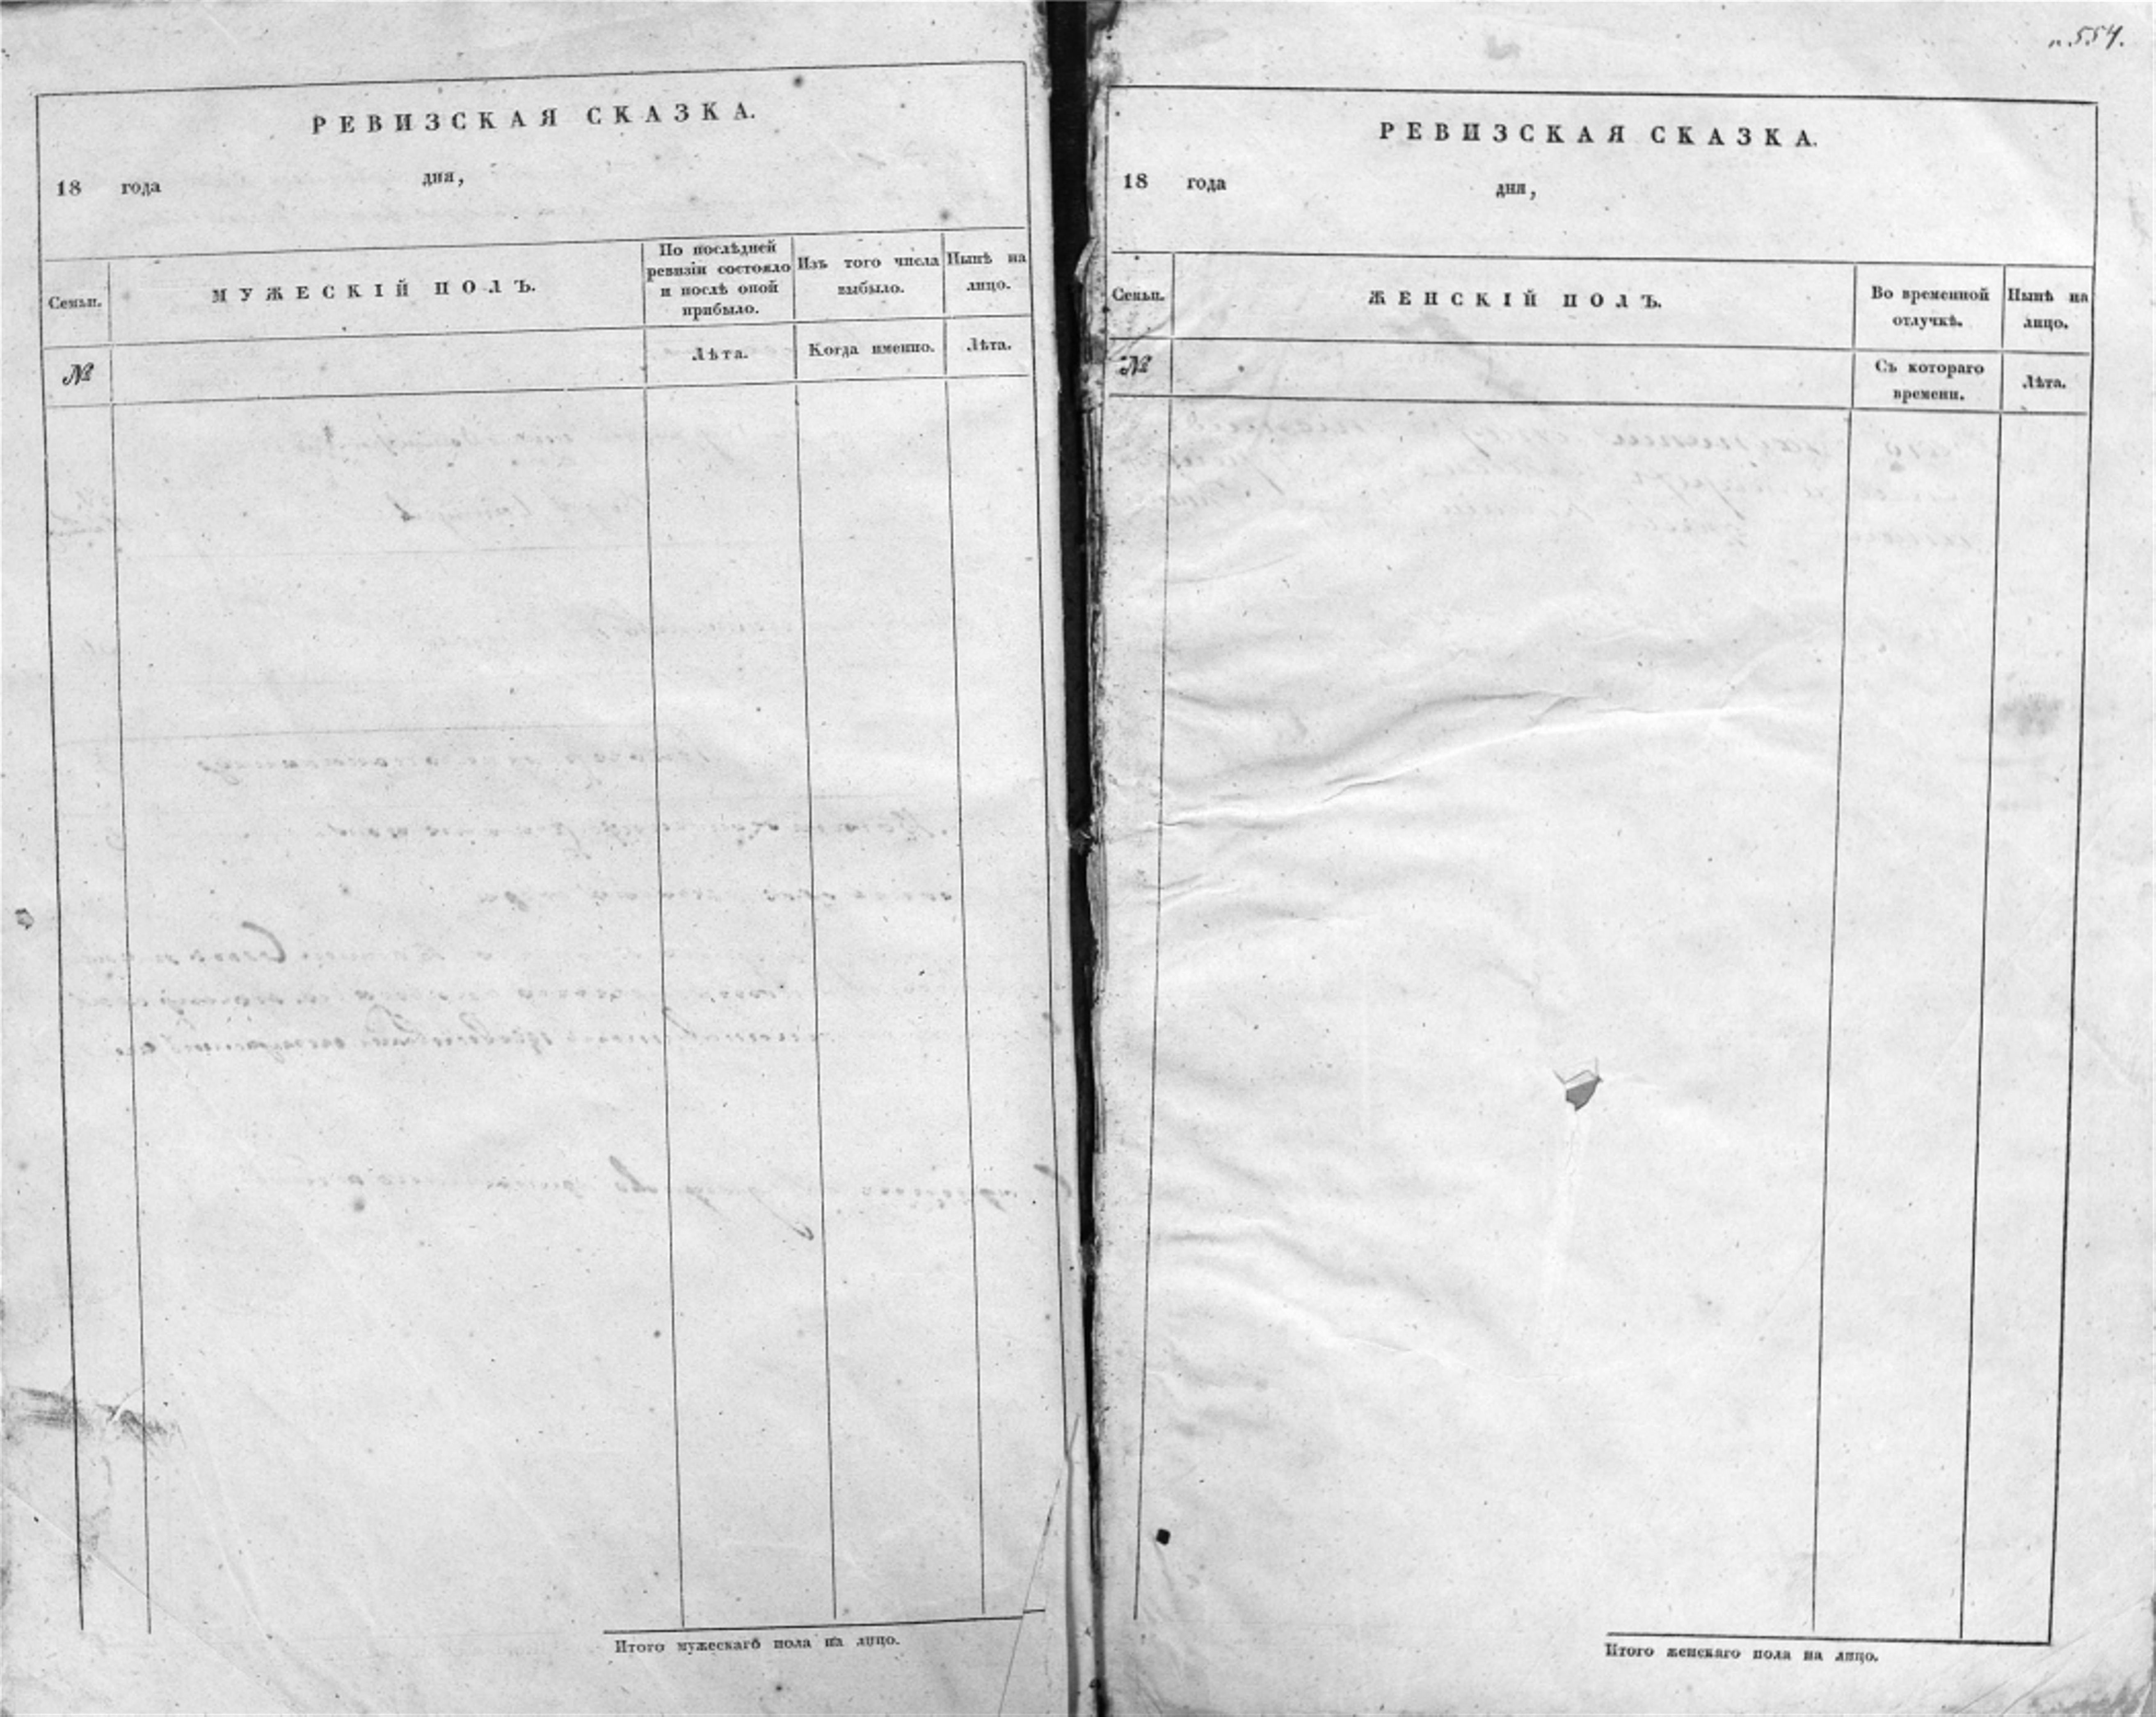 554.
РЕВИЗСКАЯ СКАЗКА.
18 года дня,
Семьи.
МУЖЕСКІЙ ПОЛЪ.
По послѣдней
ревизіи состояло
и послѣ оной
прибыло.
Изъ того числа
выбыло.
Нынѣ на
лицо.
№
Лѣта.
Когда именно.
Лѣта.
Итого мужескаго пола на лицо.
РЕВИЗСКАЯ СКАЗКА.
18 года дня,
Семьи.
ЖЕНСКІЙ ПОЛЪ.
Во временной
отлучкѣ.
Нынѣ на
лицо.
№
Съ котораго
времени.
Лѣта.
Итого женскаго пола на лицо.